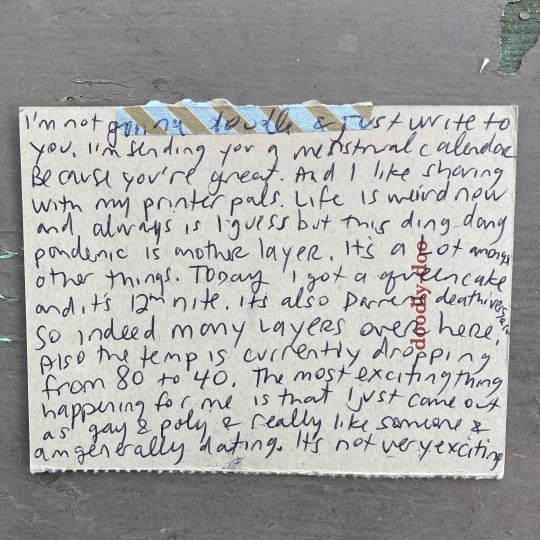 I'm not going doodle & just write to
you. I'm sending you a menstrual calendar
Because you're great. And I like sharing
with my printer pals. Life is weird now
and always is I guess but this ding dang
pandemic is another layer. It's a Lot amongst
other things. Today I got a queencake
and it's 12th nite. its also Darrens deathiversary
So indeed many layers over here.
Also the temp is currently dropping
from 80 to 40. The most exciting thing
happening for me is that I just came out
as gay & poly & really like someone &
am generally dating. It's not very exciting
doodly-doo